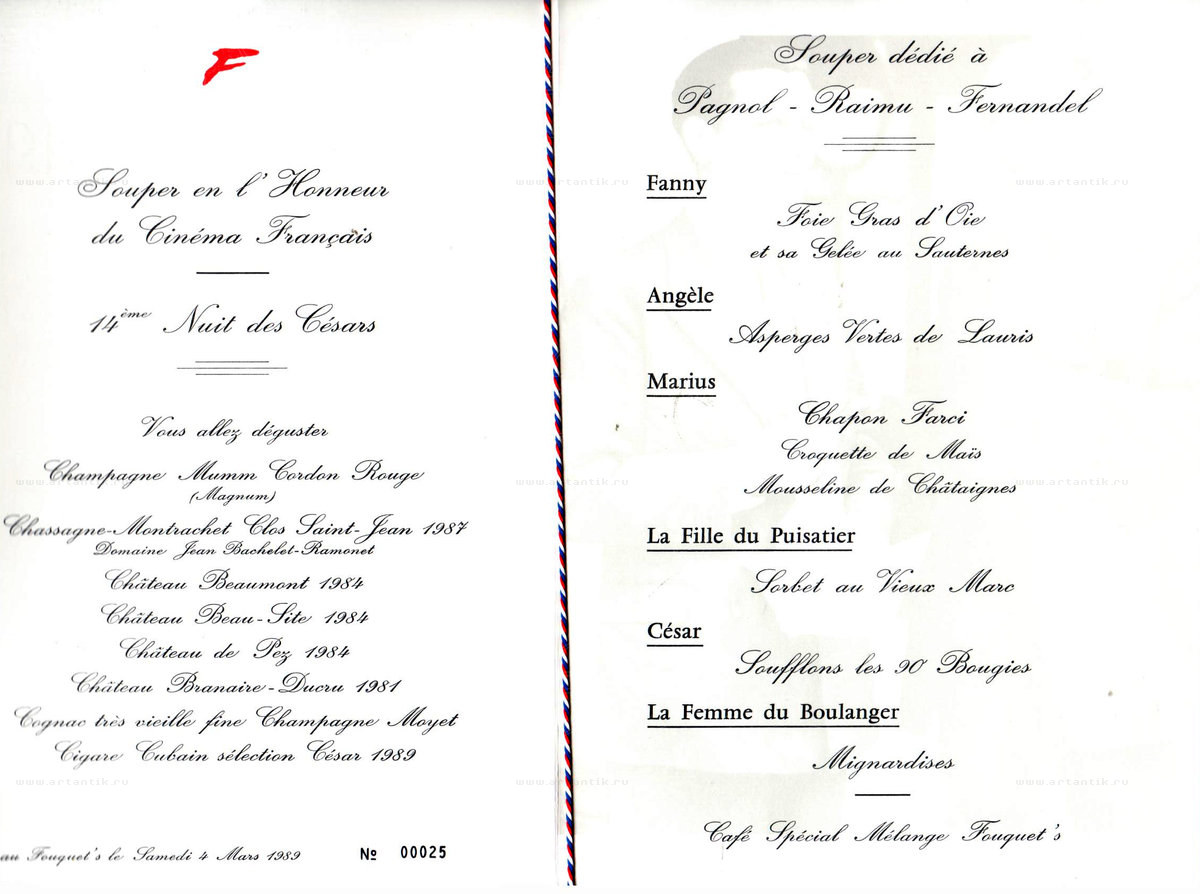 F
Souper en l'Honneur
du Cinéma Français
14ème Nuit des Césars
Vous allez déguster
Champagne Mumm Cordon Rouge
(Magnum)
Chassagne-Montrachet Clos Saint-Jean 1987
Domaine Jean Bachelet-Ramonet
Château Beaumont 1984
Château Beau-Site 1984
Château de Pez 1984
Château Branaire-Ducru 1981
Cognac très vieille fine Champagne Moyet
Cigare Cubain sélection César 1989
au Fouquet's le Samedi 4 Mars 1989 № 00025
Souper dédié à
Pagnol - Raimu - Fernandel
Fanny
Foie Gras d'Oie
et sa Gelée au Sauternes
Angèle
Asperges Vertes de Lauris
Marius
Chapon Farci
Croquette de Maïs
Mousseline de Châtaignes
La Fille du Puisatier
Sorbet au Vieux Marc
César
Soufflons les 90 Bougies
La Femme du Boulanger
Mignardises
Café Spécial Mélange Fouquet's
www.artantik.ru
www.artantik.ru
www.artantik.ru
www.artantik.ru
www.artantik.ru
www.artantik.ru
www.artantik.ru
www.artantik.ru
www.artantik.ru